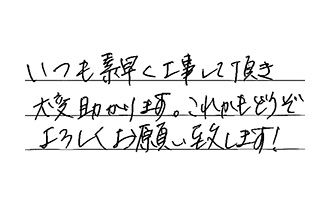 いつも素早く工事して頂き
大変助かります。これからもどうぞ
よろしくお願い致します!